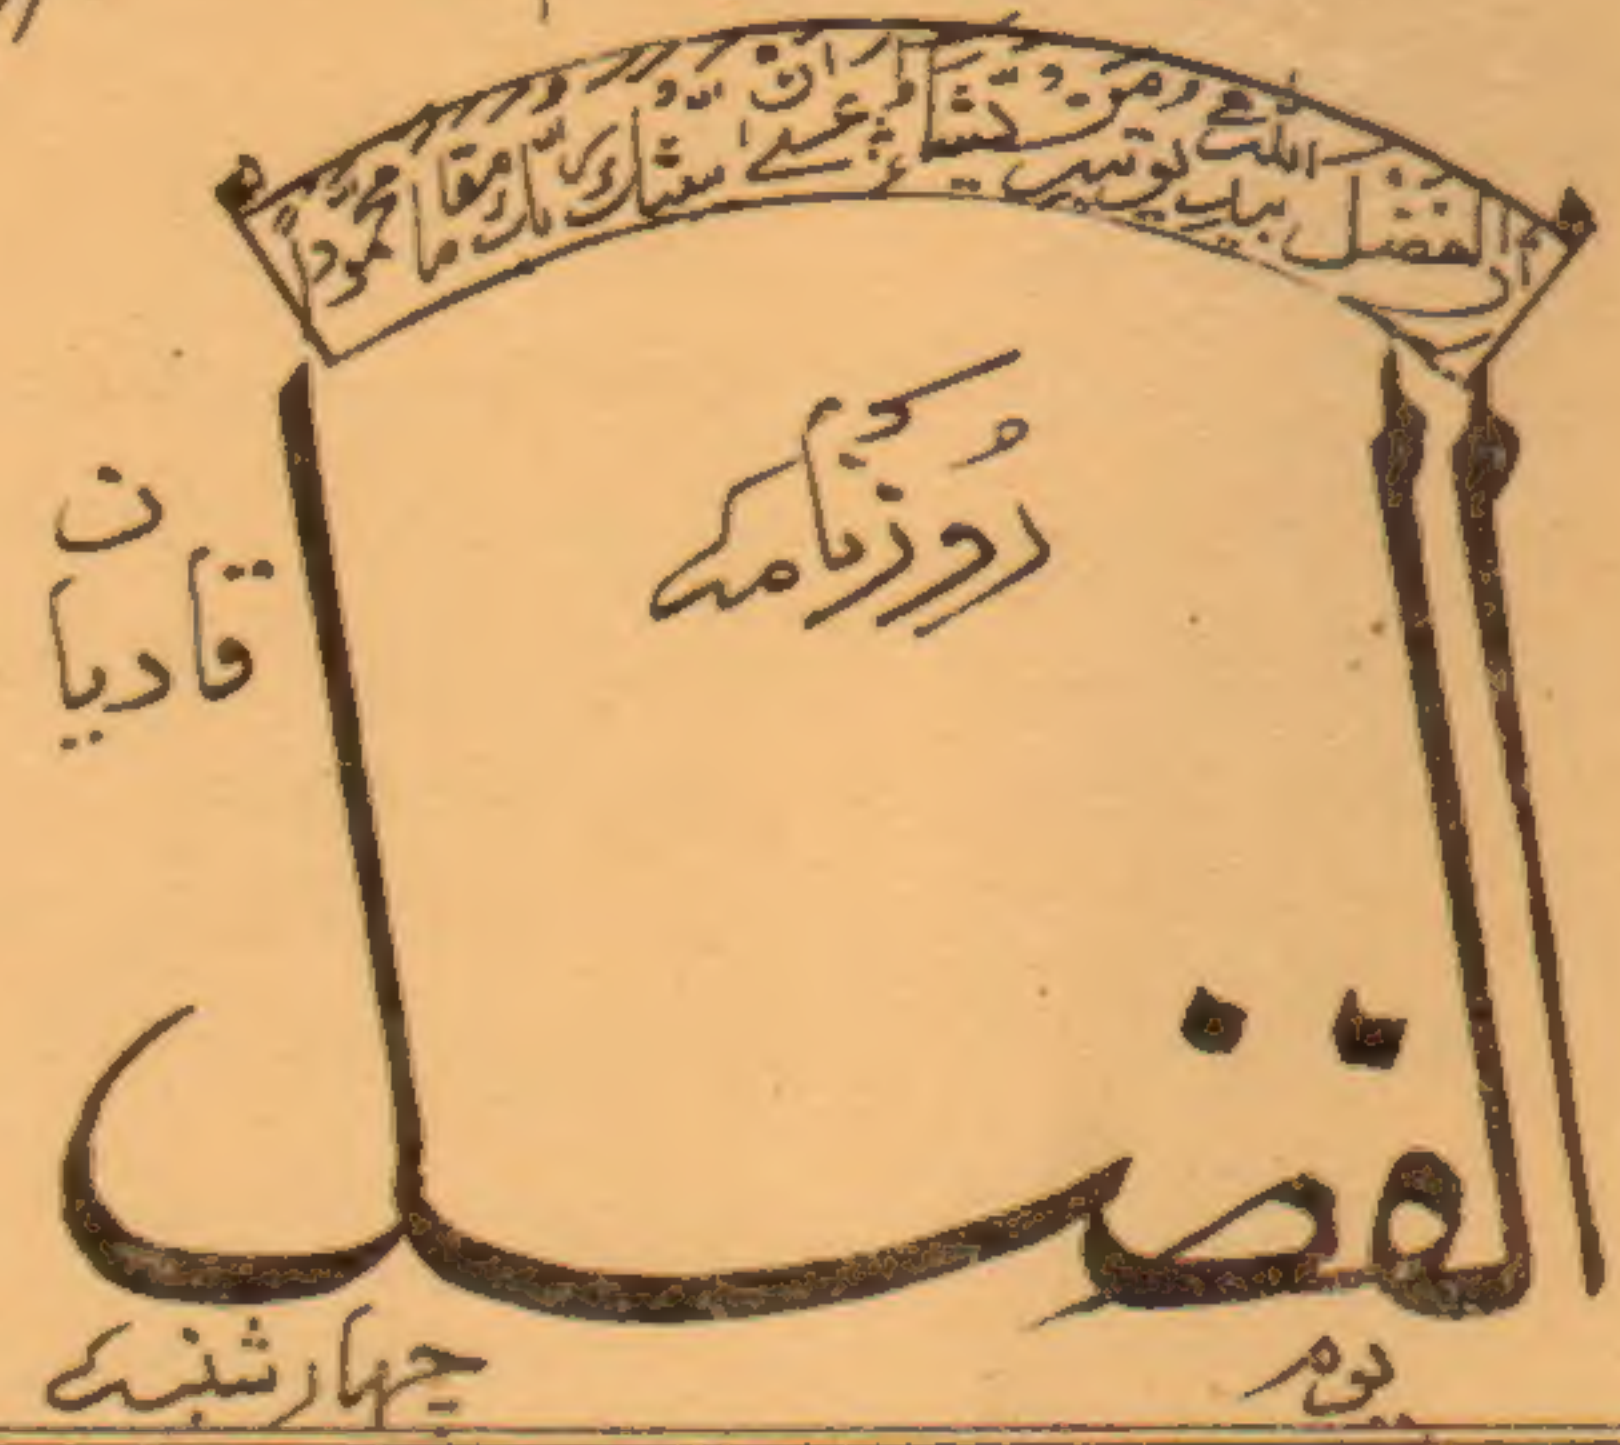 ان الفضل بيد الله يؤتيه من يشاء عسى ان يبعثك ربك مقاما محمودا
روزنامہ
قادیان
الفضل
یوم چہار شنبہ